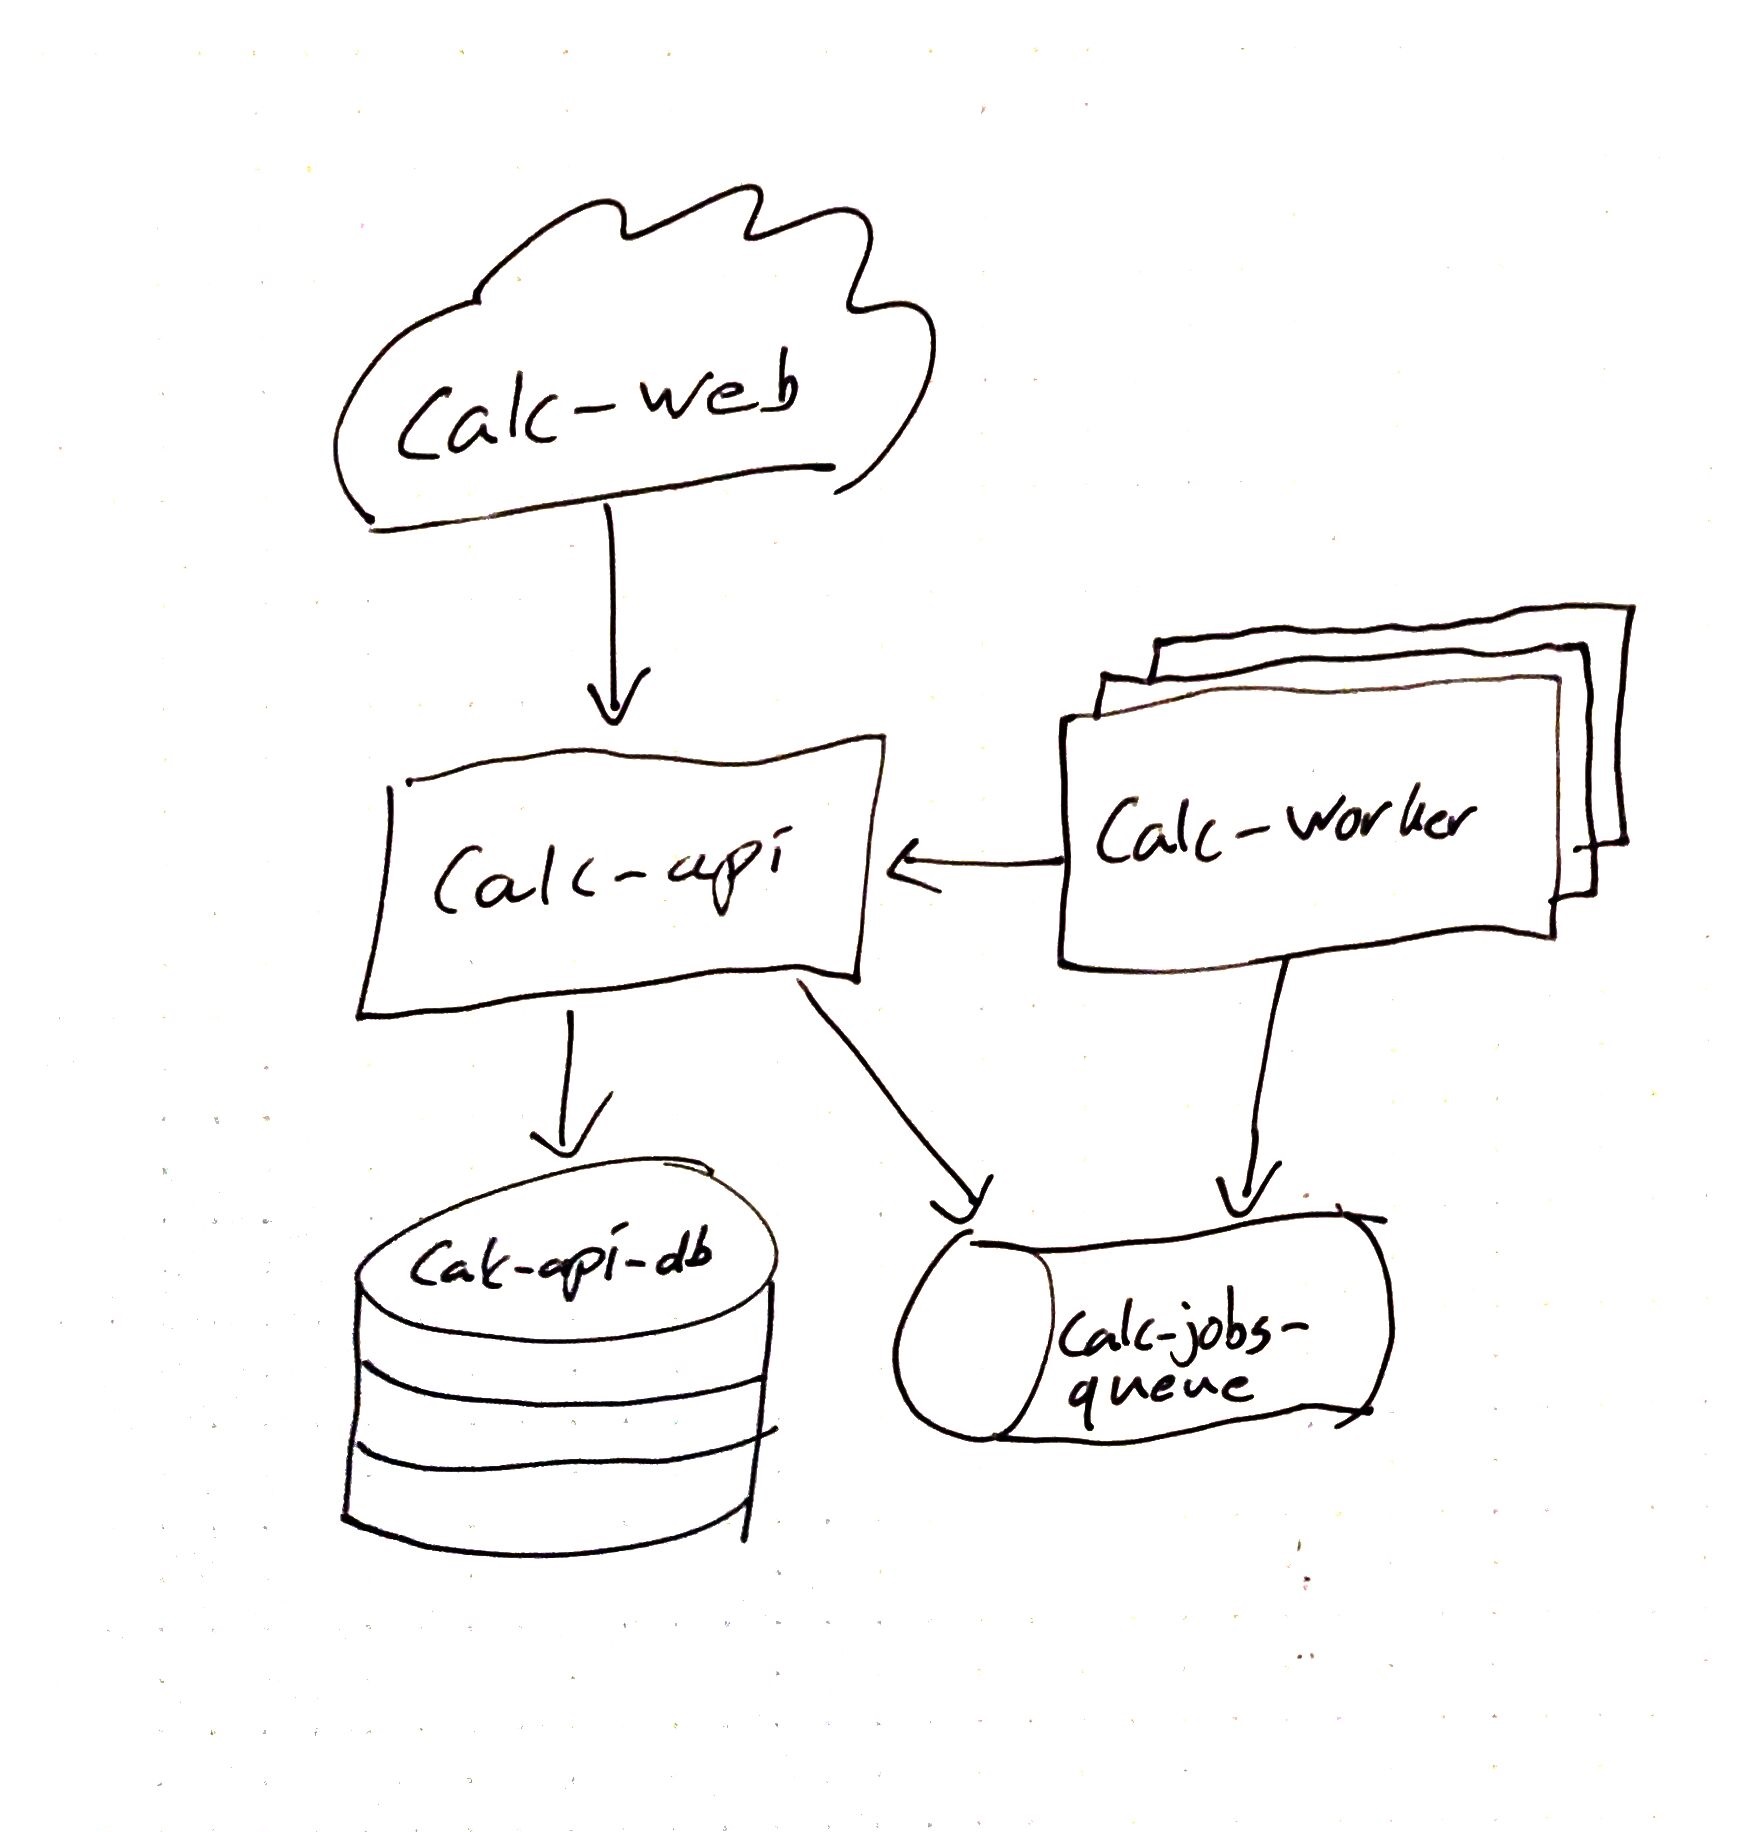 Calc-web
Calc-api
Calc-worker
Calc-api-db
Calc-jobs-
queue